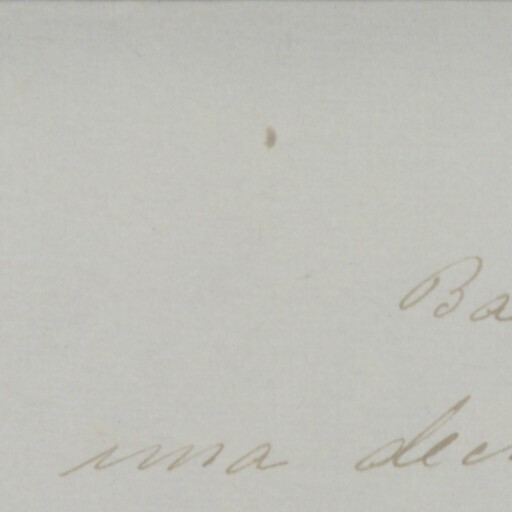 Ba
una dec